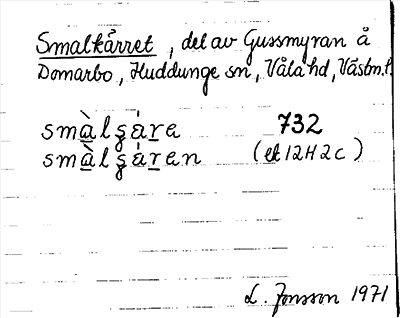 Smalkårret, del av Gussmyran å
Domarbo, Huddunge sn, Våla hd, Västm.l.
smàlşáre 732
smàlşáren (ek 12H2c)
L. Jonsson 1971